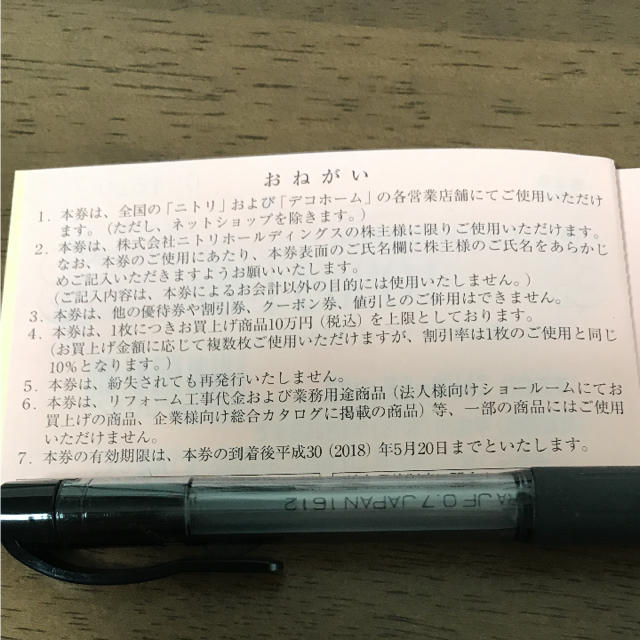 おねがい
1. 本券は、全国の「ニトリ」および「デコホーム」の各営業店舗にてご使用いただけ
ます。(ただし、ネットショップを除きます。)
2. 本券は、株式会社ニトリホールディングスの株主様に限りご使用いただけます。
なお、本券のご使用にあたり、本券表面のご氏名欄に株主様のご氏名をあらかじ
めご記入いただきますようお願いいたします。
(ご記入内容は、本券によるお会計以外の目的には使用いたしません。)
3. 本券は、他の優待券や割引券、クーポン券、値引とのご併用はできません。
4. 本券は、1枚につきお買上げ商品10万円(税込)を上限としております。
(お買上げ金額に応じて複数枚ご使用いただけますが、割引率は1枚のご使用と同じ
10%となります。)
5. 本券は、紛失されても再発行いたしません。
6. 本券は、リフォーム工事代金および業務用途商品(法人様向けショールームにてお
買上げの商品、企業様向け総合カタログに掲載の商品)等、一部の商品にはご使用
いただけません。
7. 本券の有効期限は、本券の到着後平成30(2018)年5月20日までといたします。
JF 0.7 JAPAN 1612